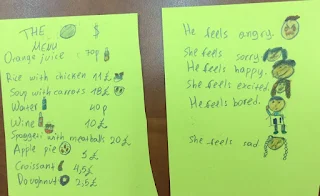 THE $
MENU
Orange juice : 70p
Rice with chicken 11£
Soup with carrots 18£
Water 40p
Wine 10£
Spaggeti with meatballs 20£
Apple pie 5£
Croissant 4,5£
Doughnut 2,5£
He feels angry.
She feels sorry
He feels happy.
She feels excited
He feels bored.
She feels sad